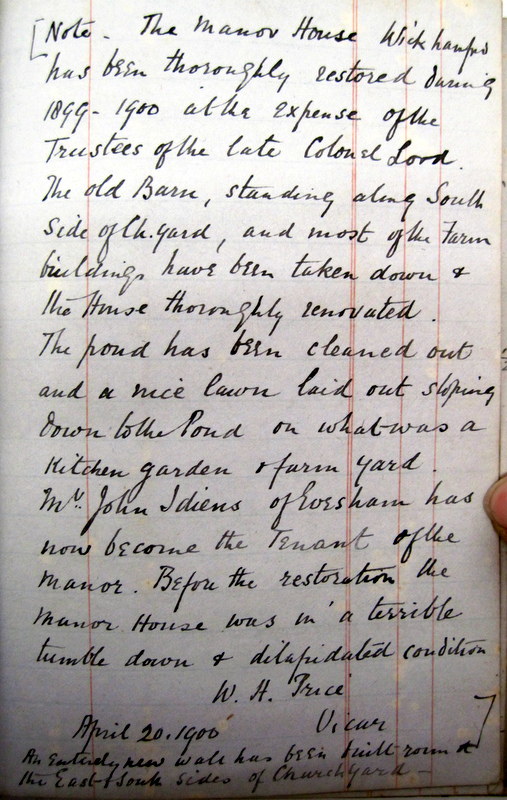 [Note - The Manor House Wickhamford
has been thoroughly restored during
1899-1900 at the expense of the
Trustees of the late Colonel Lord.
The old Barn, standing along South
side of Ch. yard, and most of the Farm
buildings have been taken down &
the House thoroughly renovated.
The pond has been cleaned out
and a nice lawn laid out sloping
down to the Pond on what was a
Kitchen garden & farm yard.
Mr. John Idiens of Evesham has
now become the Tenant of the
Manor. Before the restoration the
Manor House was in a terrible
tumble down & dilapidated condition
W. H. Price
April 20. 1900 Vicar ]
An Entirely new wall has been built round
the East & South sides of Churchyard -